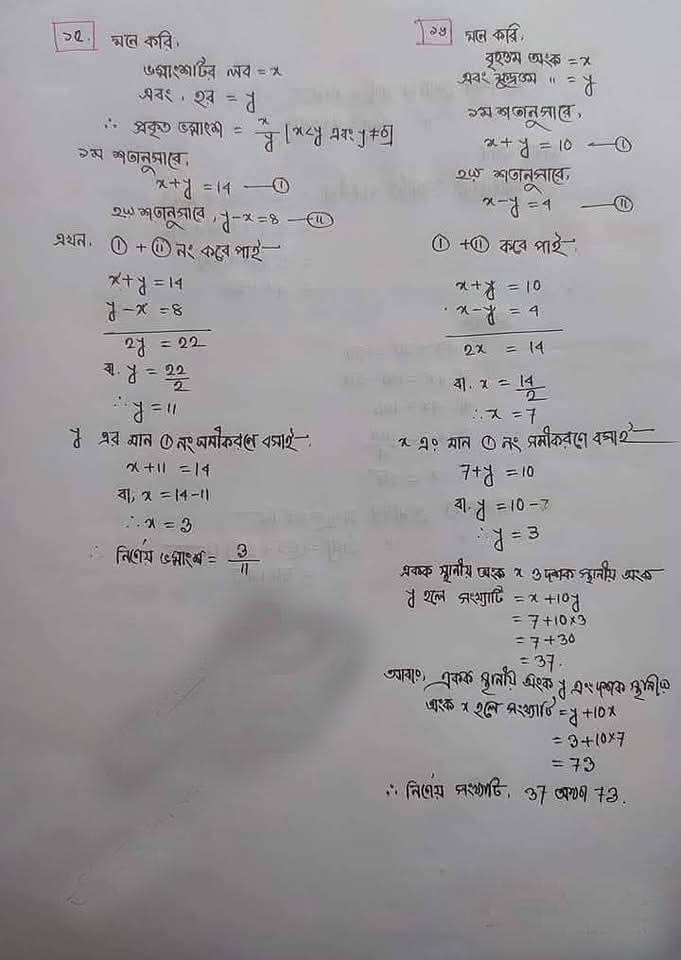 ১২. মনে করি,
ভগ্নাংশটির লব = x
এবং, হর = y
∴ প্রকৃত ভগ্নাংশ = x/y [x<y এবং y≠0]
১ম শর্তানুসারে,
x+y = 14 —(i)
২য় শর্তানুসারে, y-x = 8 —(ii)
এখন, (i) + (ii) নং করে পাই—
x+y = 14
y-x = 8
2y = 22
বা, y = 22/2
∴ y = 11
y এর মান (i) নং সমীকরণে বসাই,
x+11 = 14
বা, x = 14-11
∴ x = 3
∴ নির্ণেয় ভগ্নাংশ = 3/11
১৩ মনে করি,
বৃহত্তম অংক = x
এবং ক্ষুদ্রতম " = y
১ম শর্তানুসারে,
x+y = 10 —(i)
২য় শর্তানুসারে,
x-y = 4 —(ii)
(i) + (ii) করে পাই—
x+y = 10
x-y = 4
2x = 14
বা, x = 14/2
∴ x = 7
x এর মান (i) নং সমীকরণে বসাই—
7+y = 10
বা, y = 10-7
∴ y = 3
একক স্থানীয় অংক x ও দশক স্থানীয় অংক
y হলে সংখ্যাটি = x+10y
= 7+10×3
= 7+30
= 37.
আবার, একক স্থানীয় অংক y এবং দশক স্থানীয়
অংক x হলে সংখ্যাটি = y+10x
= 3+10×7
= 73
∴ নির্ণেয় সংখ্যাটি, 37 অথবা 73.